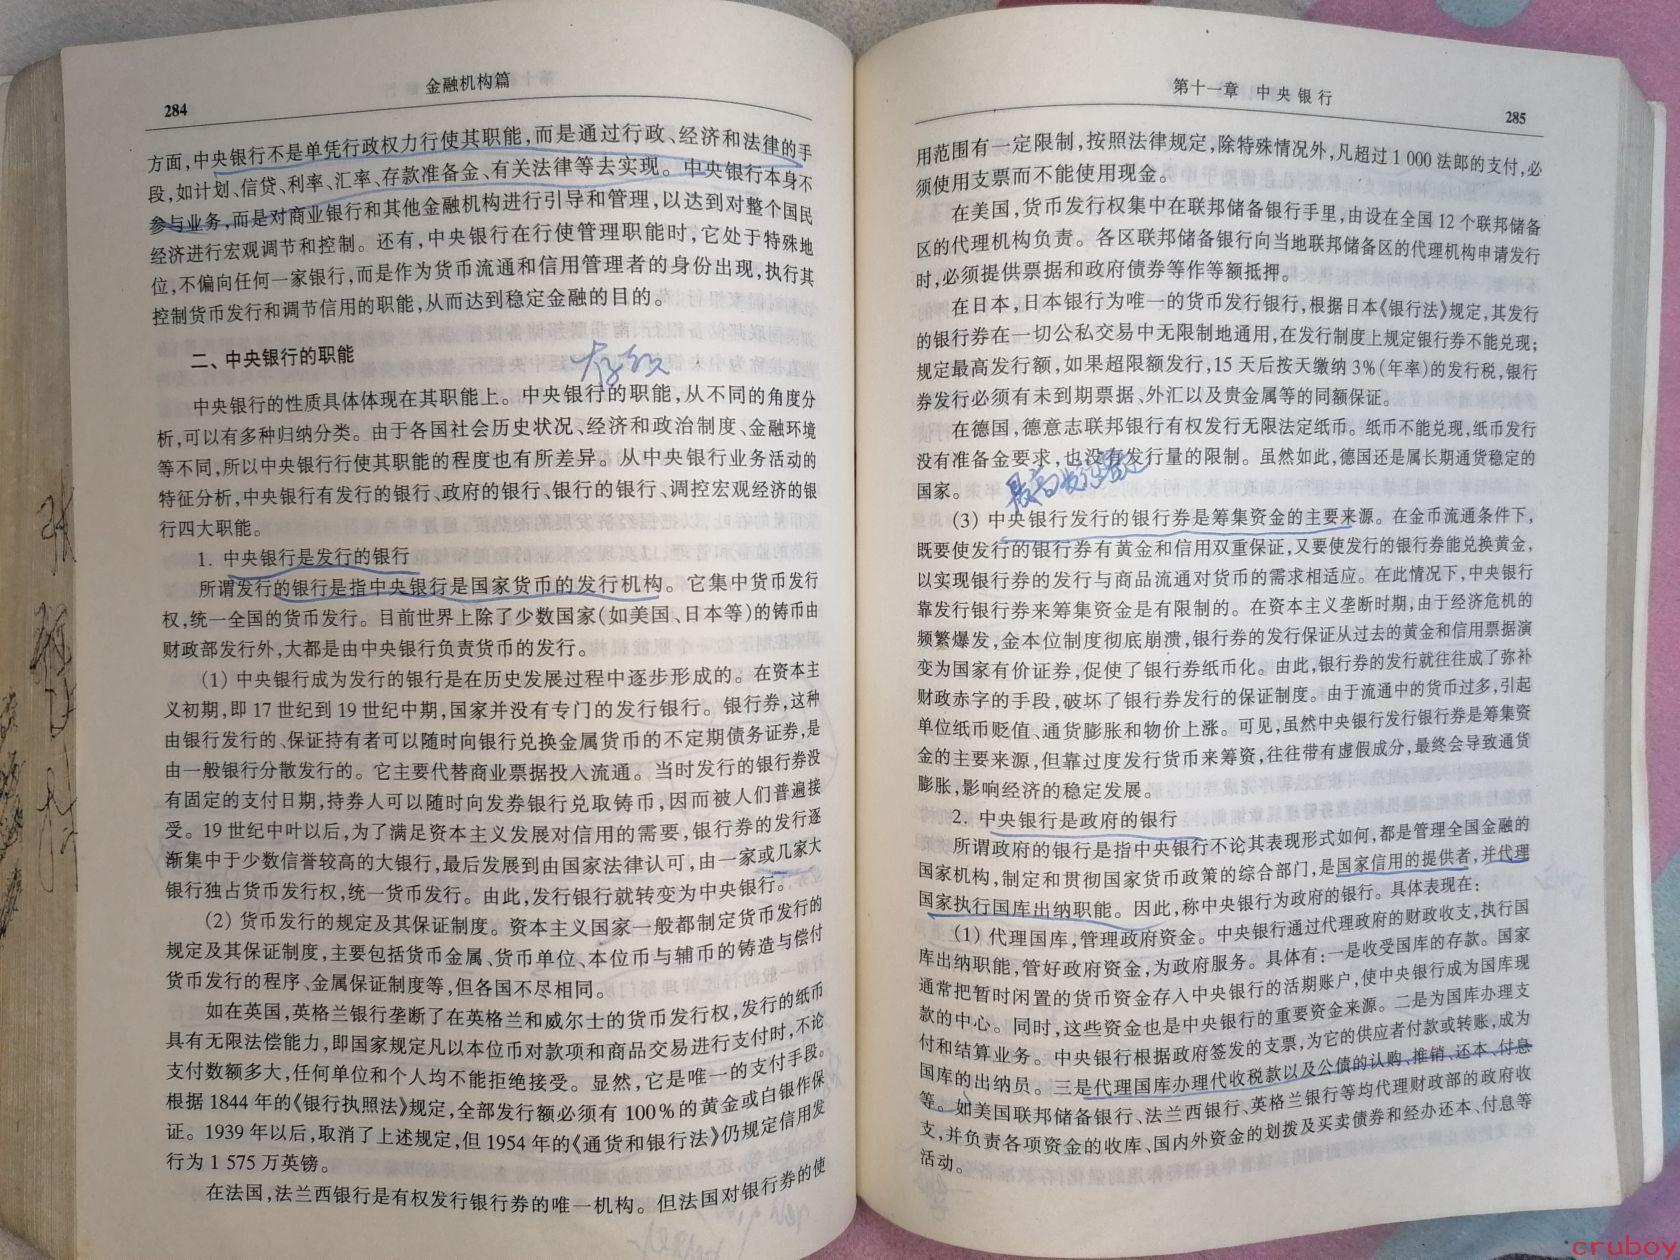 284
金融机构篇
方面,中央银行不是单凭行政权力行使其职能,而是通过行政、经济和法律的手
段,如计划、信贷、利率、汇率、存款准备金、有关法律等去实现。中央银行本身不
参与业务,而是对商业银行和其他金融机构进行引导和管理,以达到对整个国民
经济进行宏观调节和控制。还有,中央银行在行使管理职能时,它处于特殊地
位,不偏向任何一家银行,而是作为货币流通和信用管理者的身份出现,执行其
控制货币发行和调节信用的职能,从而达到稳定金融的目的。
二、中央银行的职能
中央银行的性质具体体现在其职能上。中央银行的职能,从不同的角度分
析,可以有多种归纳分类。由于各国社会历史状况、经济和政治制度、金融环境
等不同,所以中央银行行使其职能的程度也有所差异。从中央银行业务活动的
特征分析,中央银行有发行的银行、政府的银行、银行的银行、调控宏观经济的银
行四大职能。
1. 中央银行是发行的银行
所谓发行的银行是指中央银行是国家货币的发行机构。它集中货币发行
权,统一全国的货币发行。目前世界上除了少数国家(如美国、日本等)的铸币由
财政部发行外,大都是由中央银行负责货币的发行。
(1) 中央银行成为发行的银行是在历史发展过程中逐步形成的。在资本主
义初期,即 17 世纪到 19 世纪中期,国家并没有专门的发行银行。银行券,这种
由银行发行的、保证持有者可以随时向银行兑换金属货币的不定期债务证券,是
由一般银行分散发行的。它主要代替商业票据投入流通。当时发行的银行券没
有固定的支付日期,持券人可以随时向发券银行兑取铸币,因而被人们普遍接
受。19 世纪中叶以后,为了满足资本主义发展对信用的需要,银行券的发行逐
渐集中于少数信誉较高的大银行,最后发展到由国家法律认可,由一家或几家大
银行独占货币发行权,统一货币发行。由此,发行银行就转变为中央银行。
(2) 货币发行的规定及其保证制度。资本主义国家一般都制定货币发行的
规定及其保证制度,主要包括货币金属、货币单位、本位币与辅币的铸造与偿付
货币发行的程序、金属保证制度等,但各国不尽相同。
如在英国,英格兰银行垄断了在英格兰和威尔士的货币发行权,发行的纸币
具有无限法偿能力,即国家规定凡以本位币对款项和商品交易进行支付时,不论
支付数额多大,任何单位和个人均不能拒绝接受。显然,它是唯一的支付手段。
根据 1844 年的《银行执照法》规定,全部发行额必须有 100%的黄金或白银作保
证。1939 年以后,取消了上述规定,但 1954 年的《通货和银行法》仍规定信用发
行为 1 575 万英镑。
在法国,法兰西银行是有权发行银行券的唯一机构。但法国对银行券的使
第十一章 中央银行
285
用范围有一定限制,按照法律规定,除特殊情况外,凡超过 1 000 法郎的支付,必
须使用支票而不能使用现金。
在美国,货币发行权集中在联邦储备银行手里,由设在全国 12 个联邦储备
区的代理机构负责。各区联邦储备银行向当地联邦储备区的代理机构申请发行
时,必须提供票据和政府债券等作等额抵押。
在日本,日本银行为唯一的货币发行银行,根据日本《银行法》规定,其发行
的银行券在一切公私交易中无限制地通用,在发行制度上规定银行券不能兑现;
规定最高发行额,如果超限额发行,15 天后按天缴纳 3%(年率)的发行税,银行
券发行必须有未到期票据、外汇以及贵金属等的同额保证。
在德国,德意志联邦银行有权发行无限法定纸币。纸币不能兑现,纸币发行
没有准备金要求,也没有发行量的限制。虽然如此,德国还是属长期通货稳定的
国家。
(3) 中央银行发行的银行券是筹集资金的主要来源。在金币流通条件下,
既要使发行的银行券有黄金和信用双重保证,又要使发行的银行券能兑换黄金,
以实现银行券的发行与商品流通对货币的需求相适应。在此情况下,中央银行
靠发行银行券来筹集资金是有限制的。在资本主义垄断时期,由于经济危机的
频繁爆发,金本位制度彻底崩溃,银行券的发行保证从过去的黄金和信用票据演
变为国家有价证券,促使了银行券纸币化。由此,银行券的发行就往往成了弥补
财政赤字的手段,破坏了银行券发行的保证制度。由于流通中的货币过多,引起
单位纸币贬值、通货膨胀和物价上涨。可见,虽然中央银行发行银行券是筹集资
金的主要来源,但靠过度发行货币来筹资,往往带有虚假成分,最终会导致通货
膨胀,影响经济的稳定发展。
2. 中央银行是政府的银行
所谓政府的银行是指中央银行不论其表现形式如何,都是管理全国金融的
国家机构,制定和贯彻国家货币政策的综合部门,是国家信用的提供者,并代理
国家执行国库出纳职能。因此,称中央银行为政府的银行。具体表现在:
(1) 代理国库,管理政府资金。中央银行通过代理政府的财政收支,执行国
库出纳职能,管好政府资金,为政府服务。具体有:一是收受国库的存款。国家
通常把暂时闲置的货币资金存入中央银行的活期账户,使中央银行成为国库现
款的中心。同时,这些资金也是中央银行的重要资金来源。二是为国库办理支
付和结算业务。中央银行根据政府签发的支票,为它的供应者付款或转账,成为
国库的出纳员。三是代理国库办理代收税款以及公债的认购、推销、还本、付息
等。如美国联邦储备银行、法兰西银行、英格兰银行等均代理财政部的政府收
支,并负责各项资金的收库、国内外资金的划拨及买卖债券和经办还本、付息等
活动。
cruboy